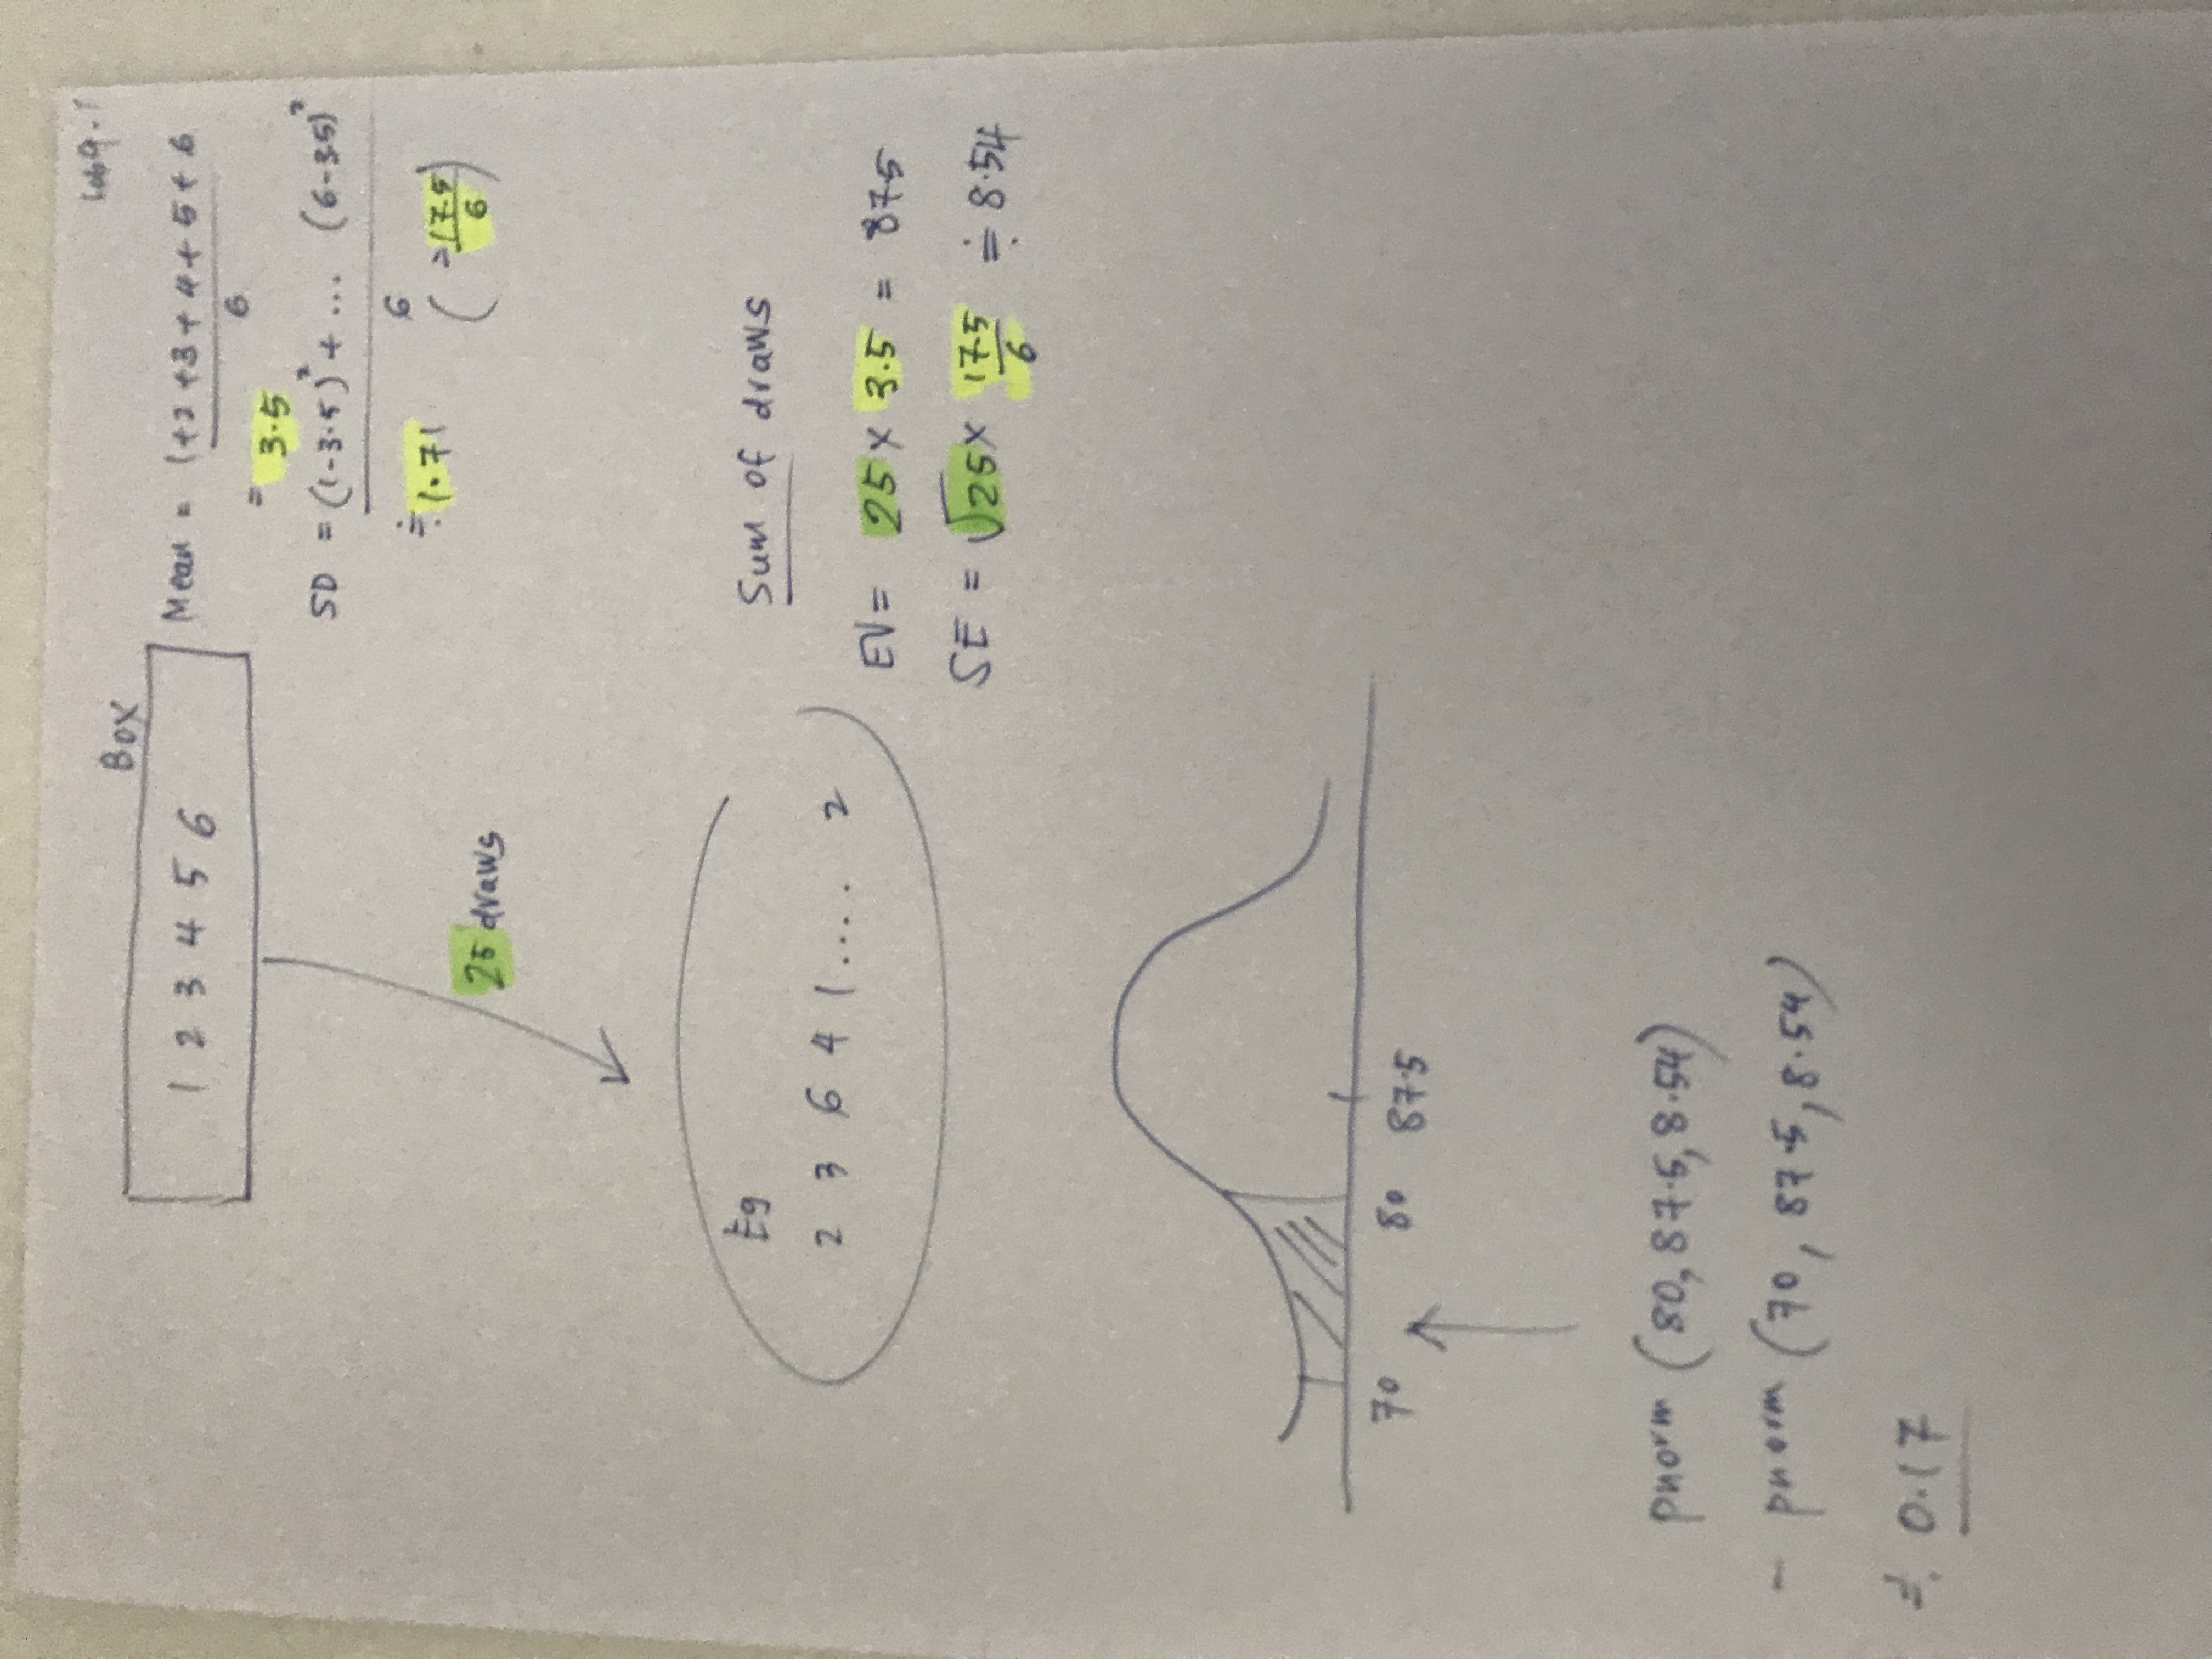 Lab 9.1
Box
1 2 3 4 5 6
Mean = 1+2+3+4+5+6
6
= 3.5
SD = (1-3.5)² + ... (6-3.5)²
6
≑ 1.71 ( = 17.5
6 )
25 draws
Eg
2 3 6 4 1.... 2
Sum of draws
EV = 25 × 3.5 = 87.5
SE = √25 × 17.5
6 ≑ 8.54
70 80 87.5
pnorm (80, 87.5, 8.54)
- pnorm (70, 87.5, 8.54)
≑ 0.17